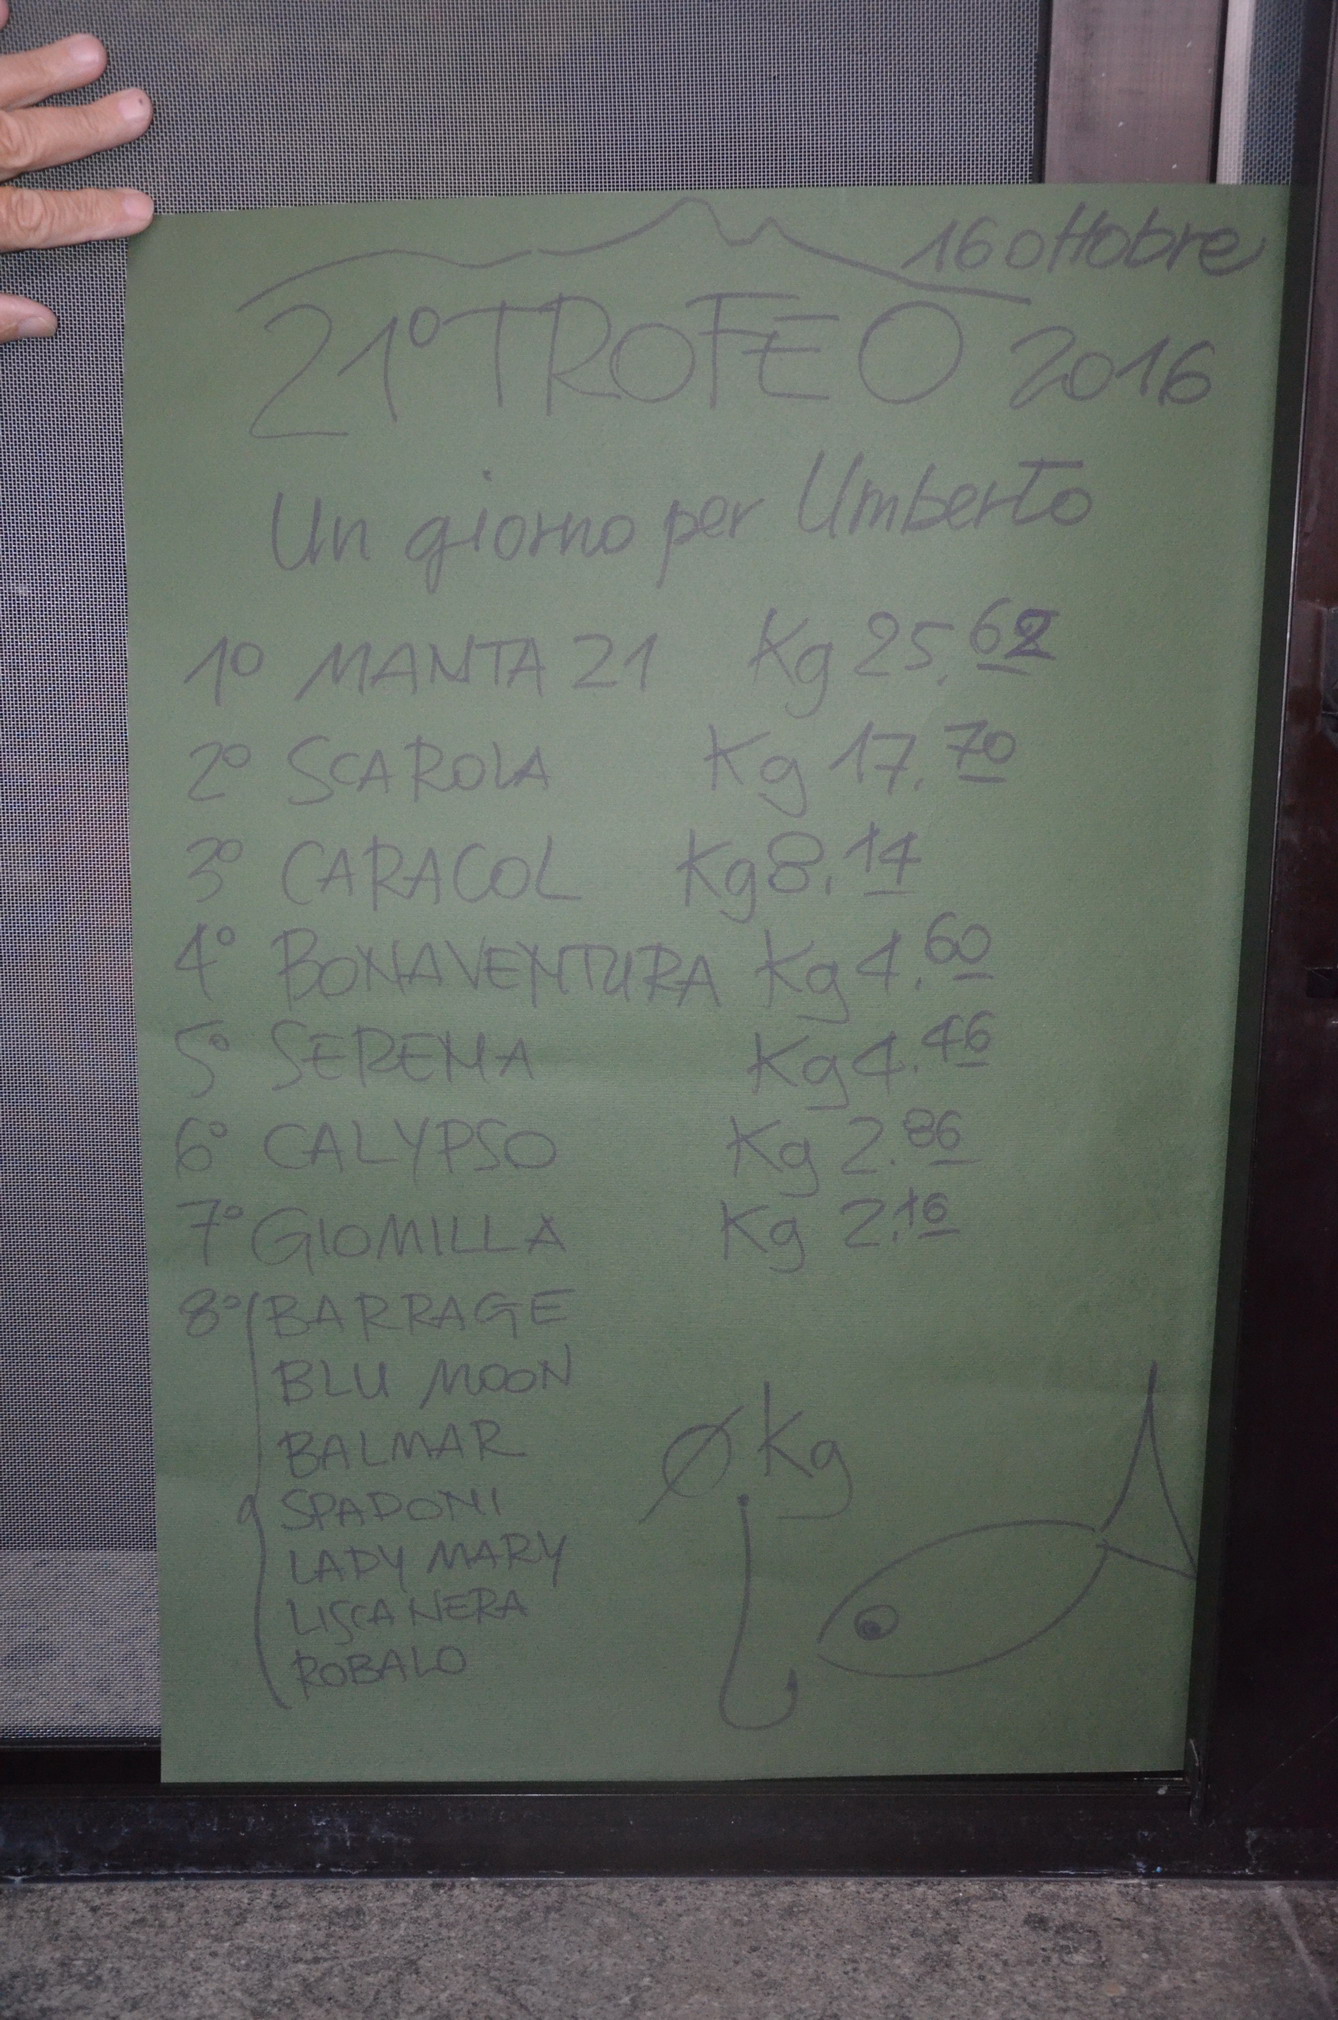 16 ottobre
21° TROFEO 2016
Un giorno per Umberto
1° MANTA 21 Kg 25,62
2° SCAROLA Kg 17,70
3° CARACOL Kg 8,14
4° BONAVENTURA Kg 4,60
5° SERENA Kg 4,46
6° CALYPSO Kg 2,86
7° GIOMILLA Kg 2,16
8° BARRAGE
BLU MOON
BALMAR
Ø Kg
SPADONI
LADY MARY
LISCA NERA
ROBALO